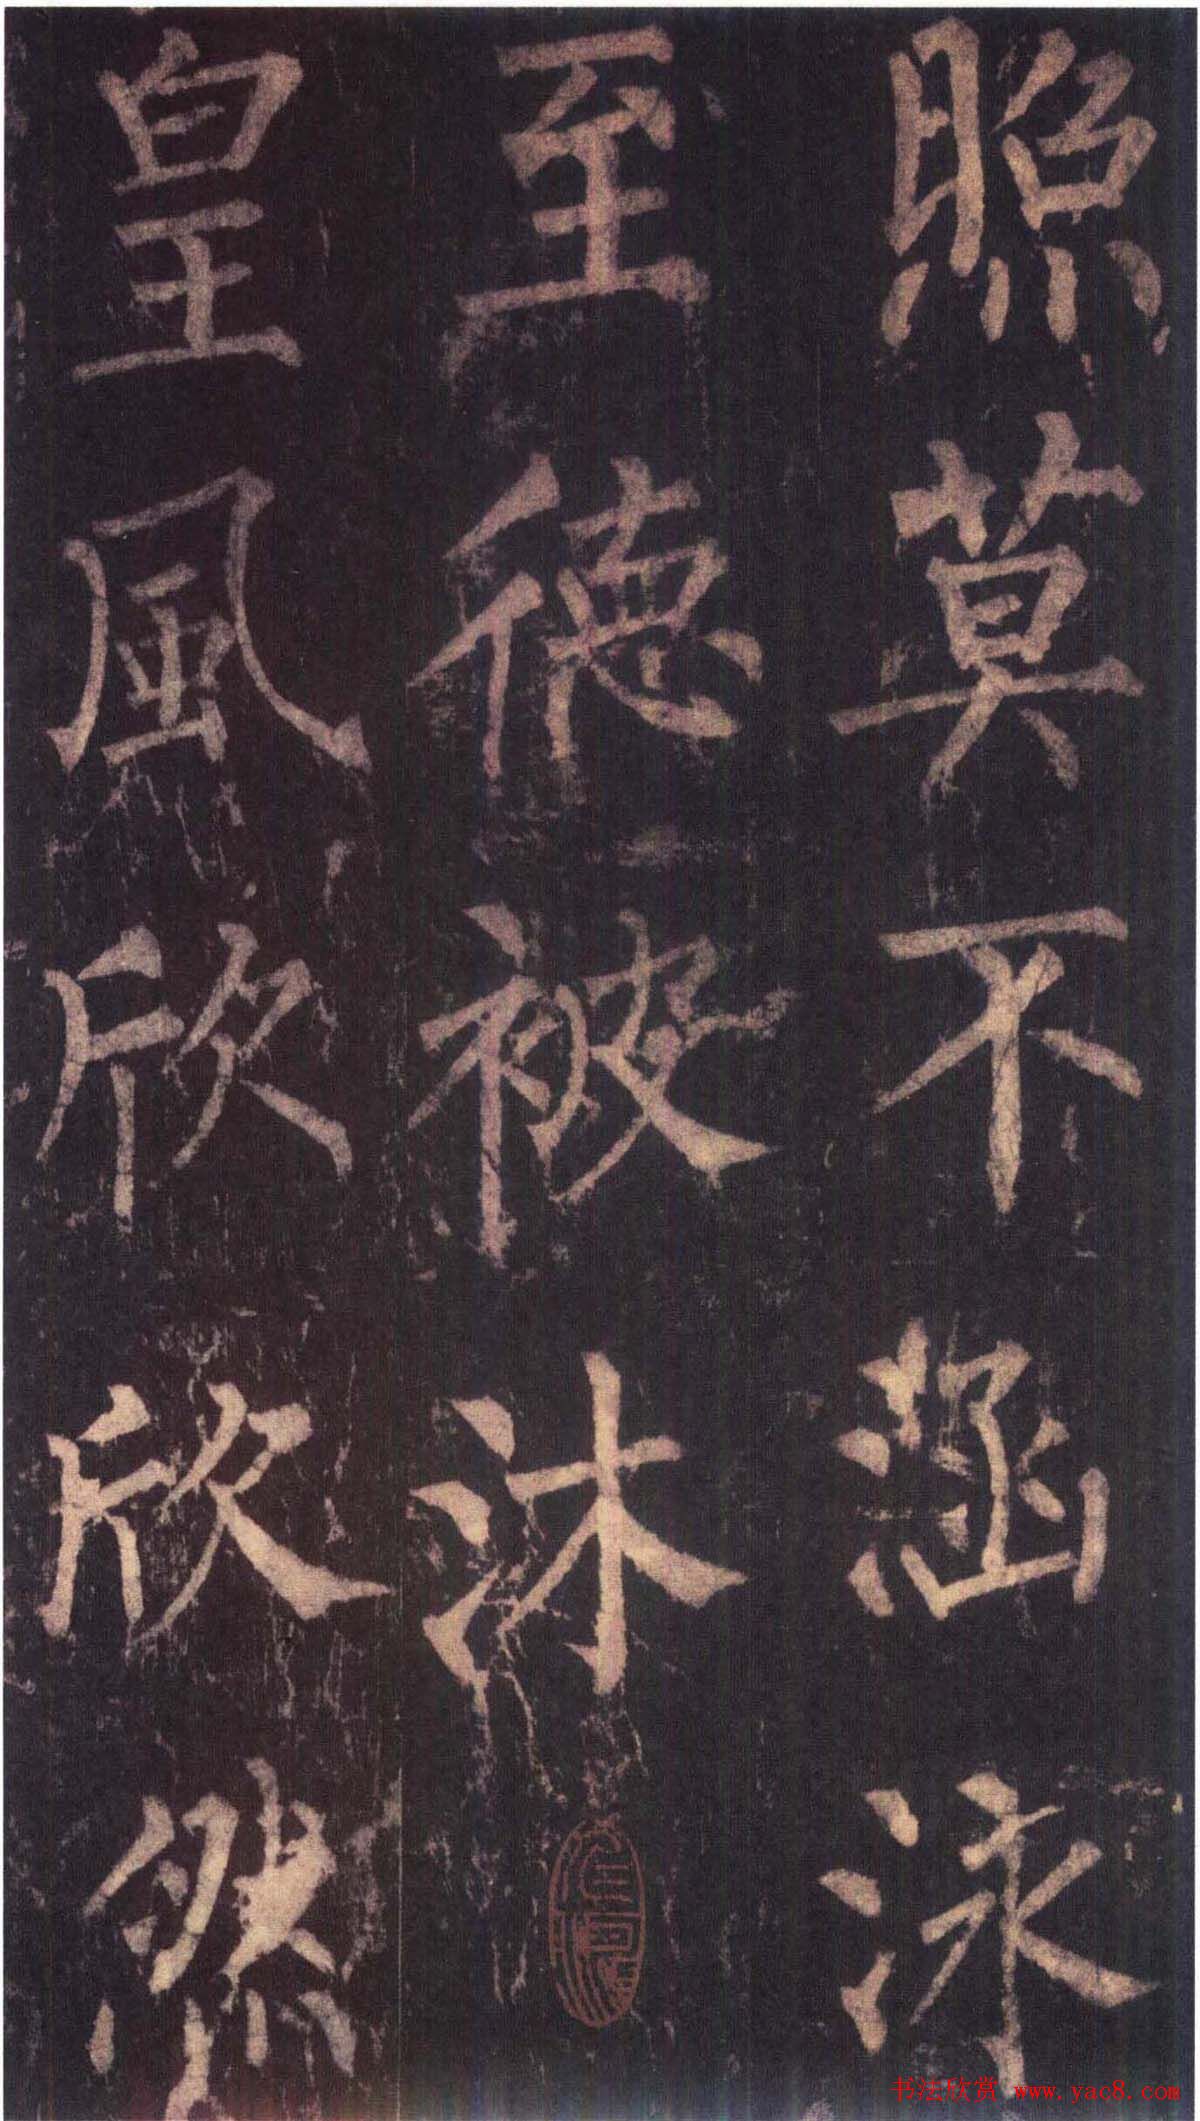 照莫不涵泳
至德被沐
皇風欣欣然
书法欣赏 www.yac8.com